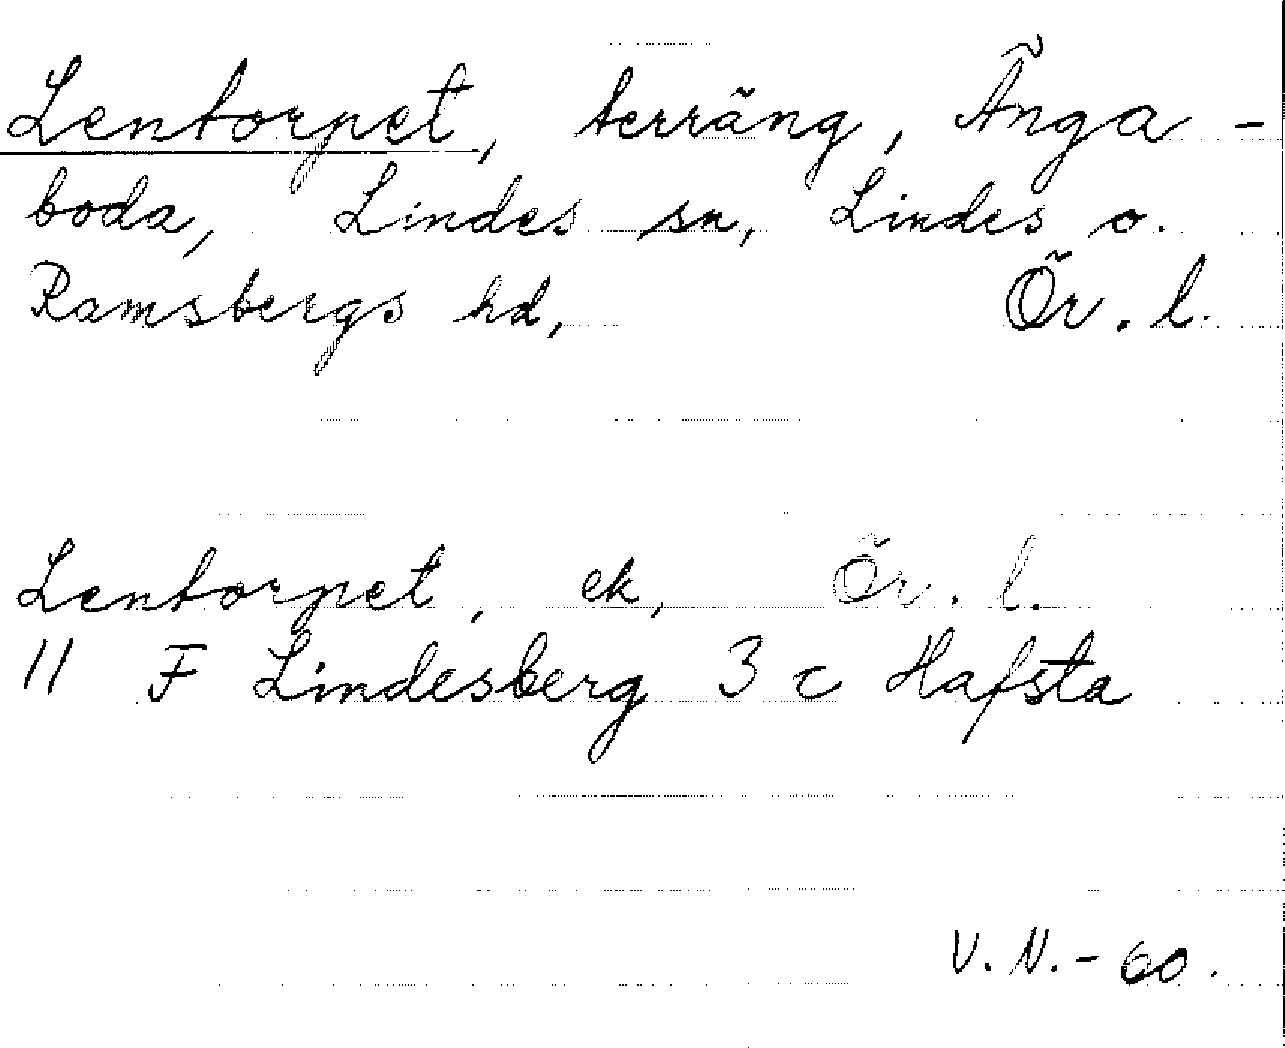 Lentorpet, terräng, Änga-
boda, Lindes sn, Lindes o.
Ramsbergs hd, Ör. l.
Lentorpet, ek, Ör. l.
11 F Lindesberg 3 c Hafsta
V. N. - 60.